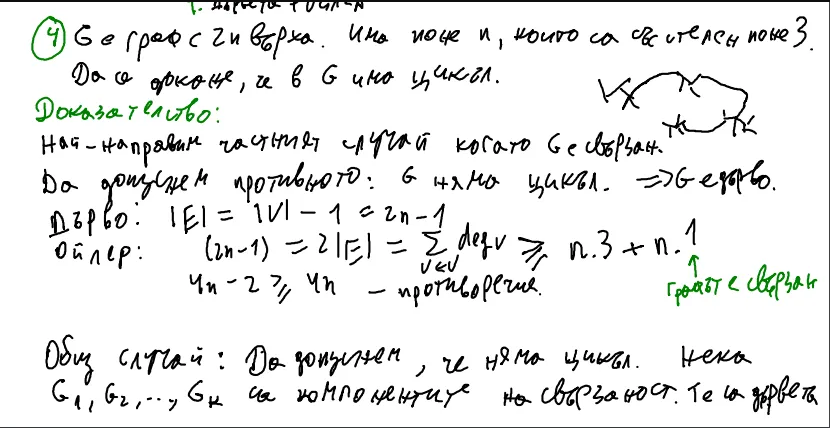 ④ G е граф с 2n върха. Има поне n, които са със степен поне 3.
Да се докаже, че в G има цикъл.
Доказателство:
Най-напред им частният случай когато G е свързан.
Да допуснем противното: G няма цикъл. => G е дърво.
Дърво: |E| = |V| - 1 = 2n - 1
Ойлер: (2n-1) = 2|E| = ∑ deg v ≥ n.3 + n.1
v∈V
4n - 2 ≥ 4n – противоречие.
графът е свързан
Общ случай: Да допуснем, че няма цикъл. Нека
G₁, G₂, ..., Gₖ са компонентите на свързаност. Те са дървета